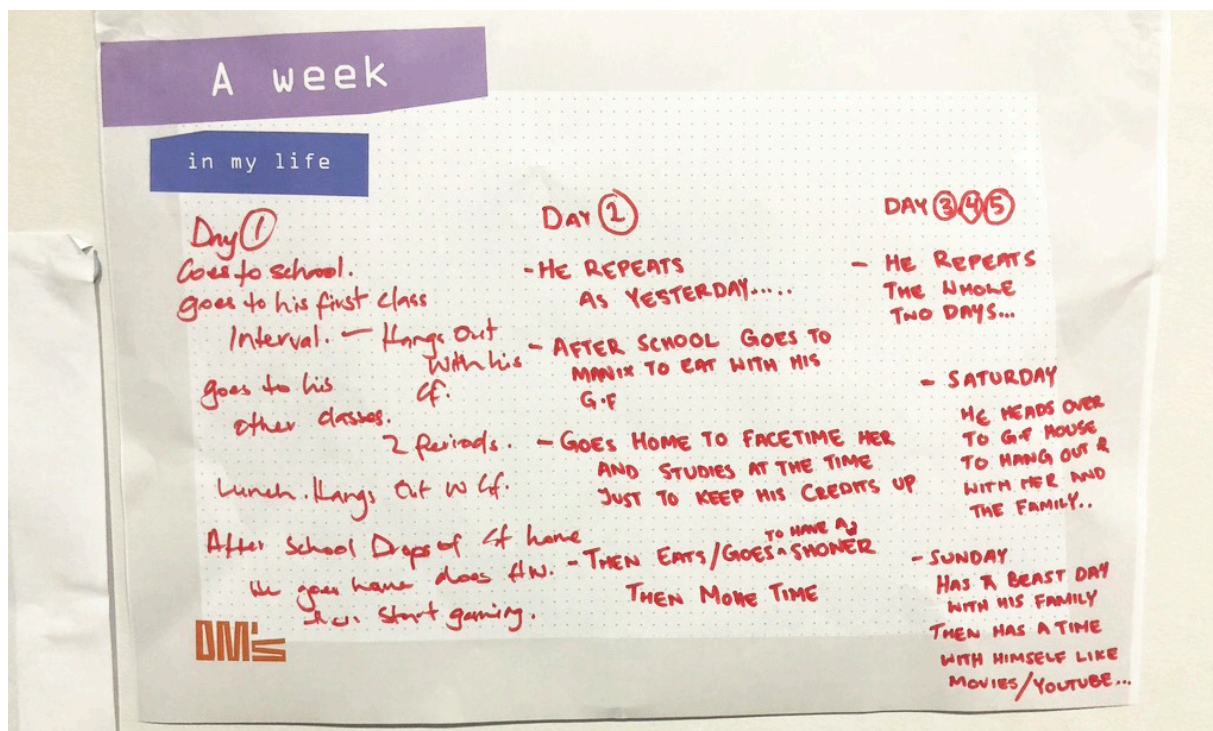 A week
in my life
Day 1
Goes to school.
goes to his first class
Interval. — Hangs Out
with his
Gf.
goes to his
other classes.
2 Periods.
Lunch. Hangs Out w Gf.
After School Drops of Gf home
He goes home does HW.
then start gaming.
DAY 2
- HE REPEATS
AS YESTERDAY.....
- AFTER SCHOOL GOES TO
MANIX TO EAT WITH HIS
G.F
- GOES HOME TO FACETIME HER
AND STUDIES AT THE TIME
JUST TO KEEP HIS CREDITS UP
- THEN EATS/GOES TO HAVE A SHOWER
THEN MOVIE TIME
DAY 3 4 5
- HE REPEATS
THE WHOLE
TWO DAYS...
- SATURDAY
HE HEADS OVER
TO G.F HOUSE
TO HANG OUT &
WITH HER AND
THE FAMILY..
- SUNDAY
HAS A BEAST DAY
WITH HIS FAMILY
THEN HAS A TIME
WITH HIMSELF LIKE
MOVIES/YOUTUBE...
DM's